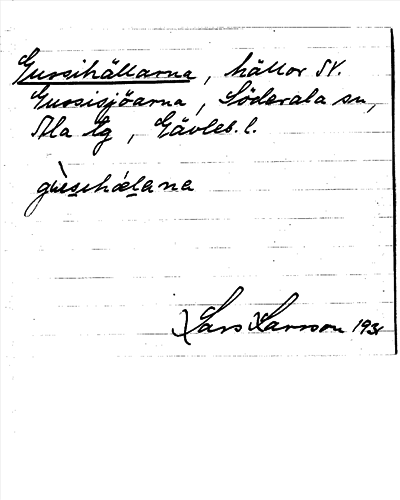 Gussihällarna, hällor SV.
Gussisjöarna, Söderala sn,
Ala tg, Gävleb. l.
gùsihälana
Lars Larsson 193